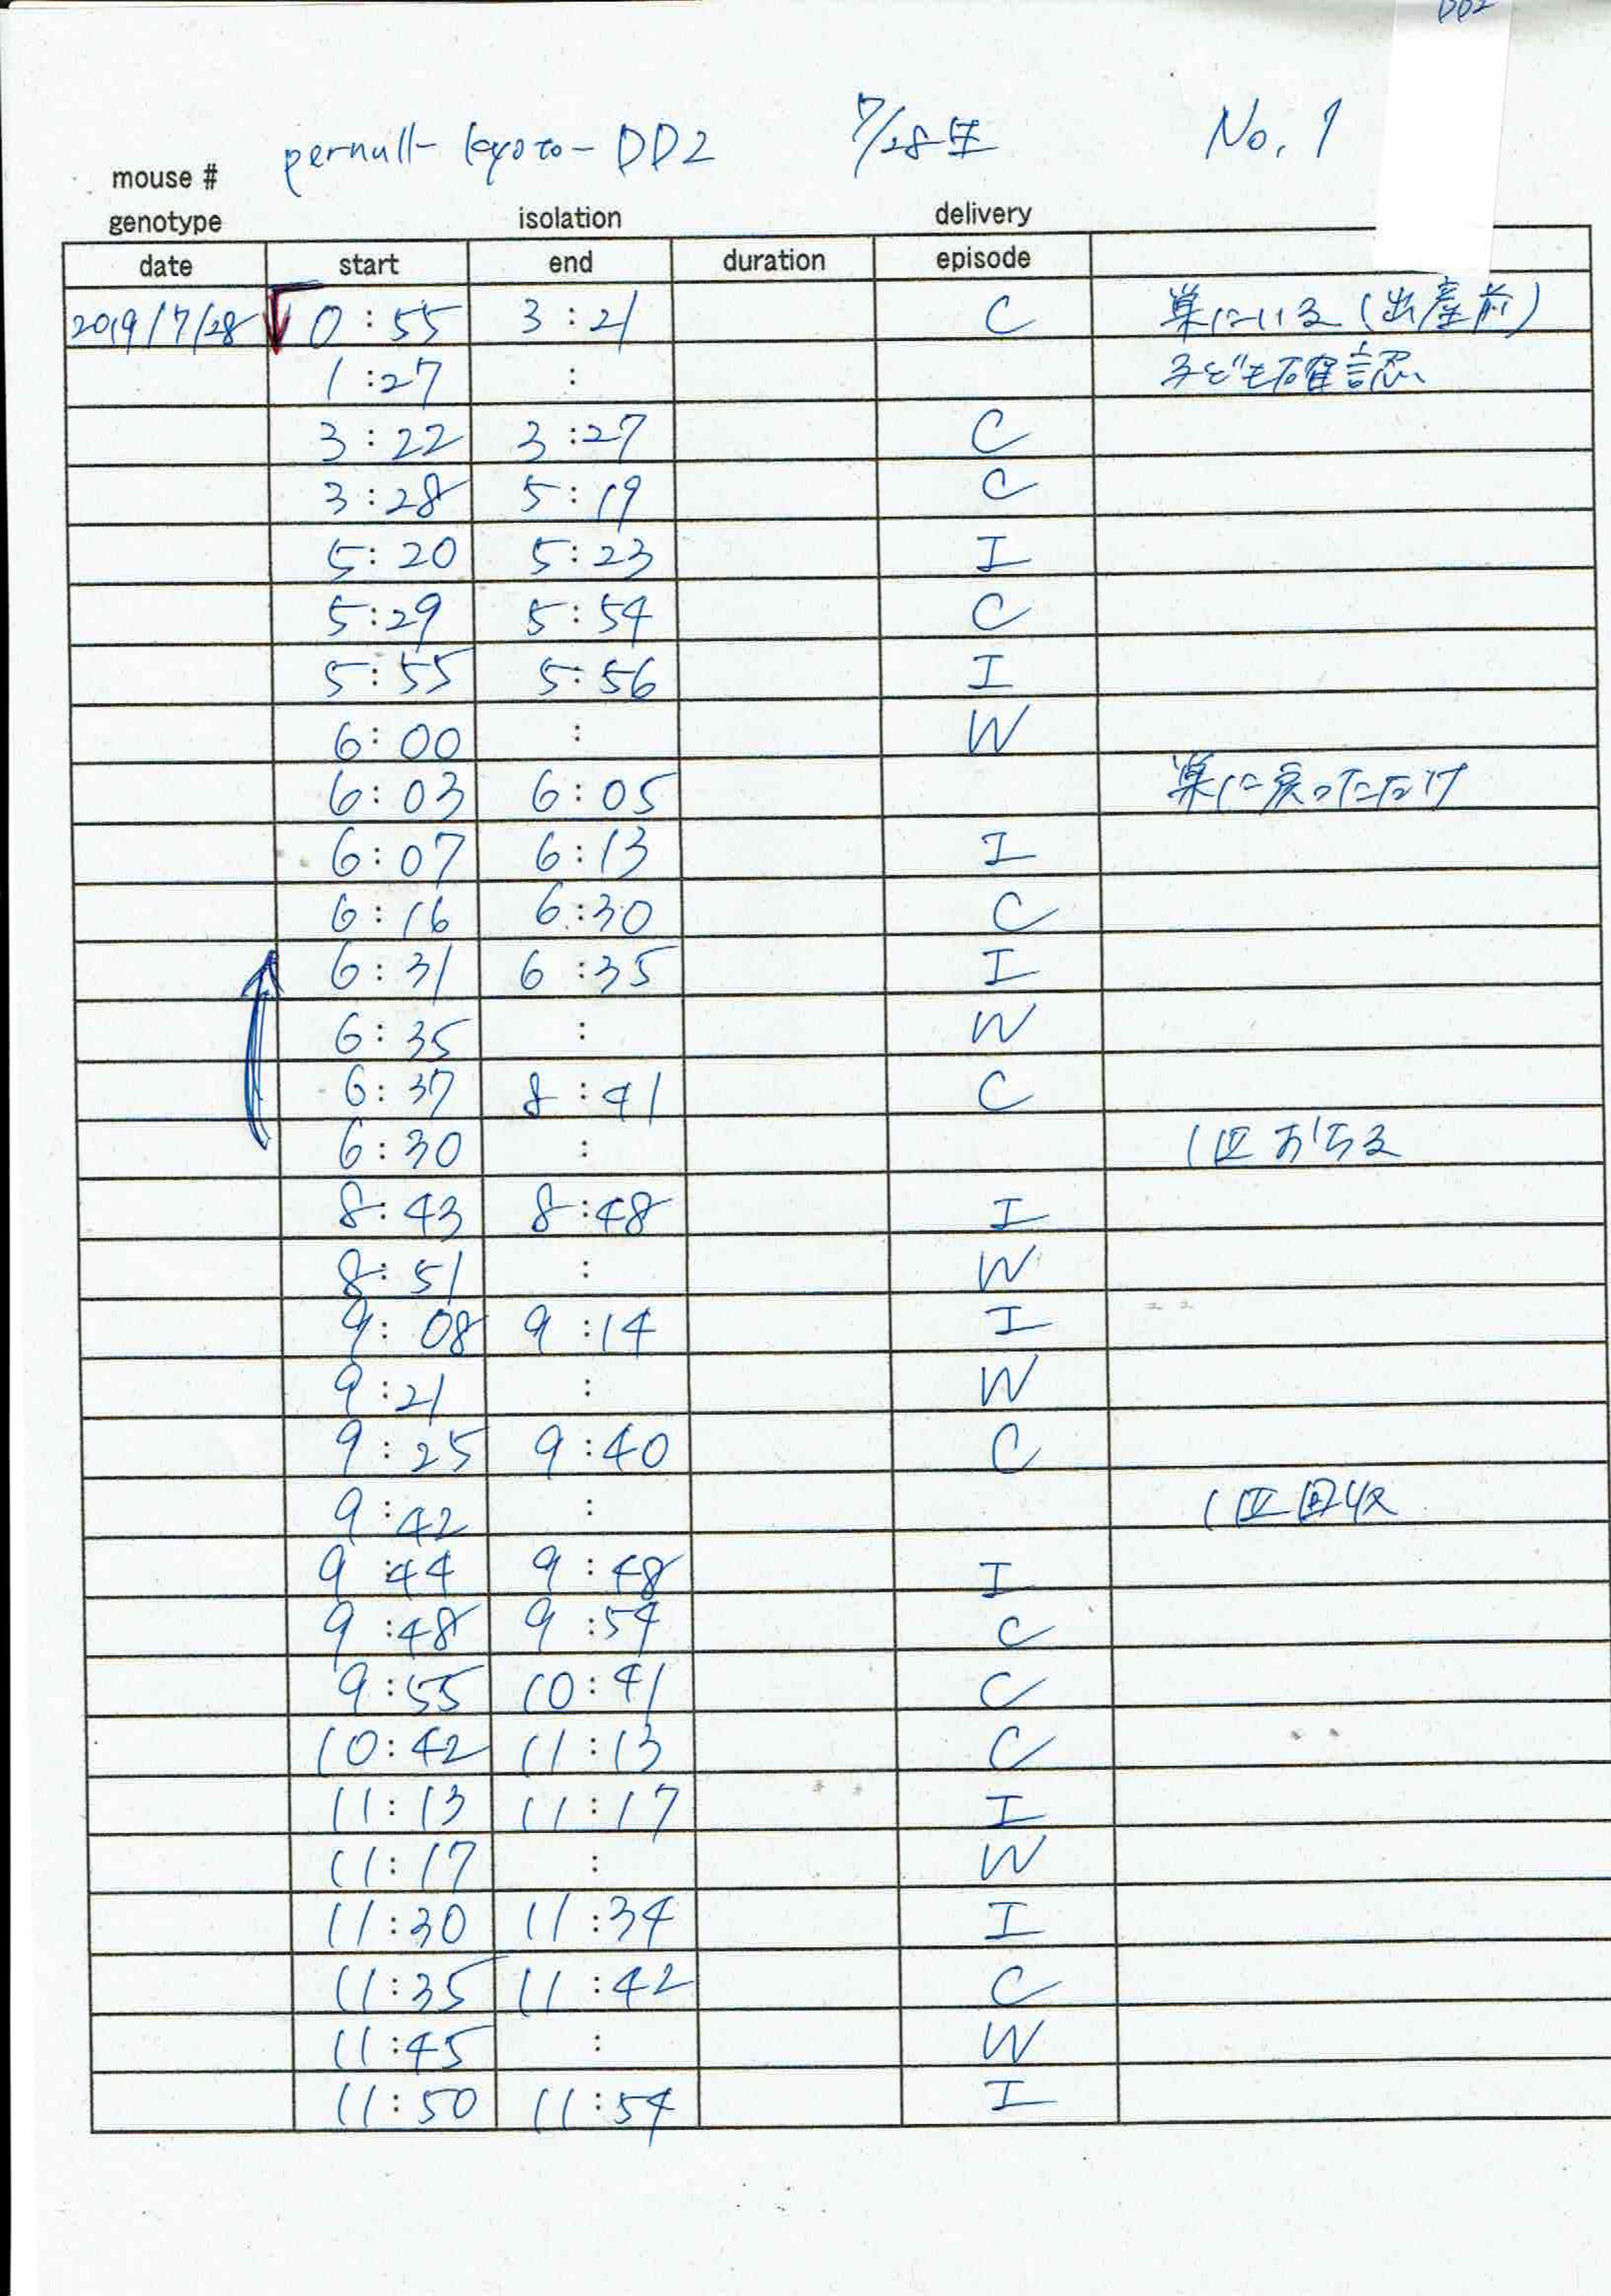 DD2
pernull- kyoto- DD2 7/28生 No. 1
mouse #
genotype isolation delivery
date start end duration episode
2019/7/28 0:55 3:21 C 巣にいる(出産前)
1:27 : 子ども確認
3:22 3:27 C
3:28 5:19 C
5:20 5:23 I
5:29 5:54 C
5:55 5:56 I
6:00 : W
6:03 6:05 巣に戻っただけ
6:07 6:13 I
6:16 6:30 C
6:31 6:35 I
6:35 : W
6:37 8:41 C
6:30 : 1匹おちる
8:43 8:48 I
8:51 : W
9:08 9:14 I
9:21 : W
9:25 9:40 C
9:42 : 1匹回収
9:44 9:48 I
9:48 9:54 C
9:55 10:41 C
10:42 11:13 C
11:13 11:17 I
11:17 : W
11:30 11:34 I
11:35 11:42 C
11:45 : W
11:50 11:54 I